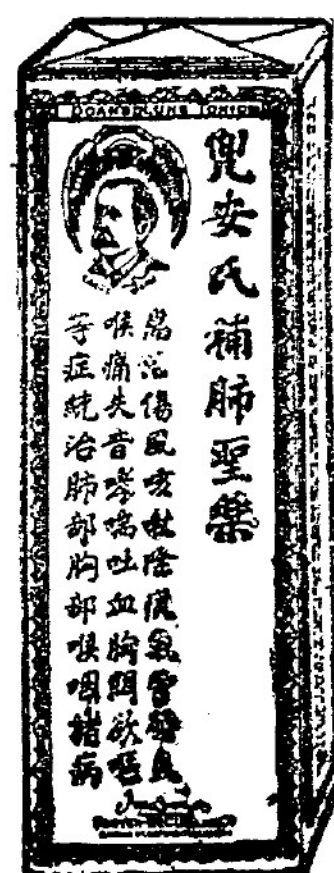 DOAN'S LUNG TONIC
兜安氏補肺聖藥
治傷風咳嗽氣管發炎
喉痛失音哮喘吐血胸悶欲嘔
等症統治肺部胸部喉咽諸病